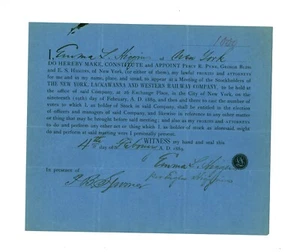 I, Emma L. of New York
DO HEREBY MAKE, CONSTITUTE and APPOINT PERCY R. PYNE, GEORGE BLISS
and E. S. HIGGINS, of New York, (or either of them), my lawful PROXIES and ATTORNEYS
for me and in my name, place, and stead, to appear at a Meeting of the Stockholders of
THE NEW YORK, LACKAWANNA AND WESTERN RAILWAY COMPANY, to be held
at the office of said Company, at 26 Exchange Place, in the City of New York, on the
nineteenth (19th) day of February, A. D. 1884, and then and there to cast the number
of votes to which I, as holder of Stock in said Company, shall be entitled in the election
of officers and managers of said Company, and likewise in reference to any other matter
or thing that may be brought before said meeting; and also as my PROXIES and ATTORNEYS
to do and perform any other act or thing which I, as holder of stock as aforesaid, might
do and perform at said meeting were I personally present.
WITNESS my hand and seal this
4th day of February A. D. 1884.
Emma L.
In presence of